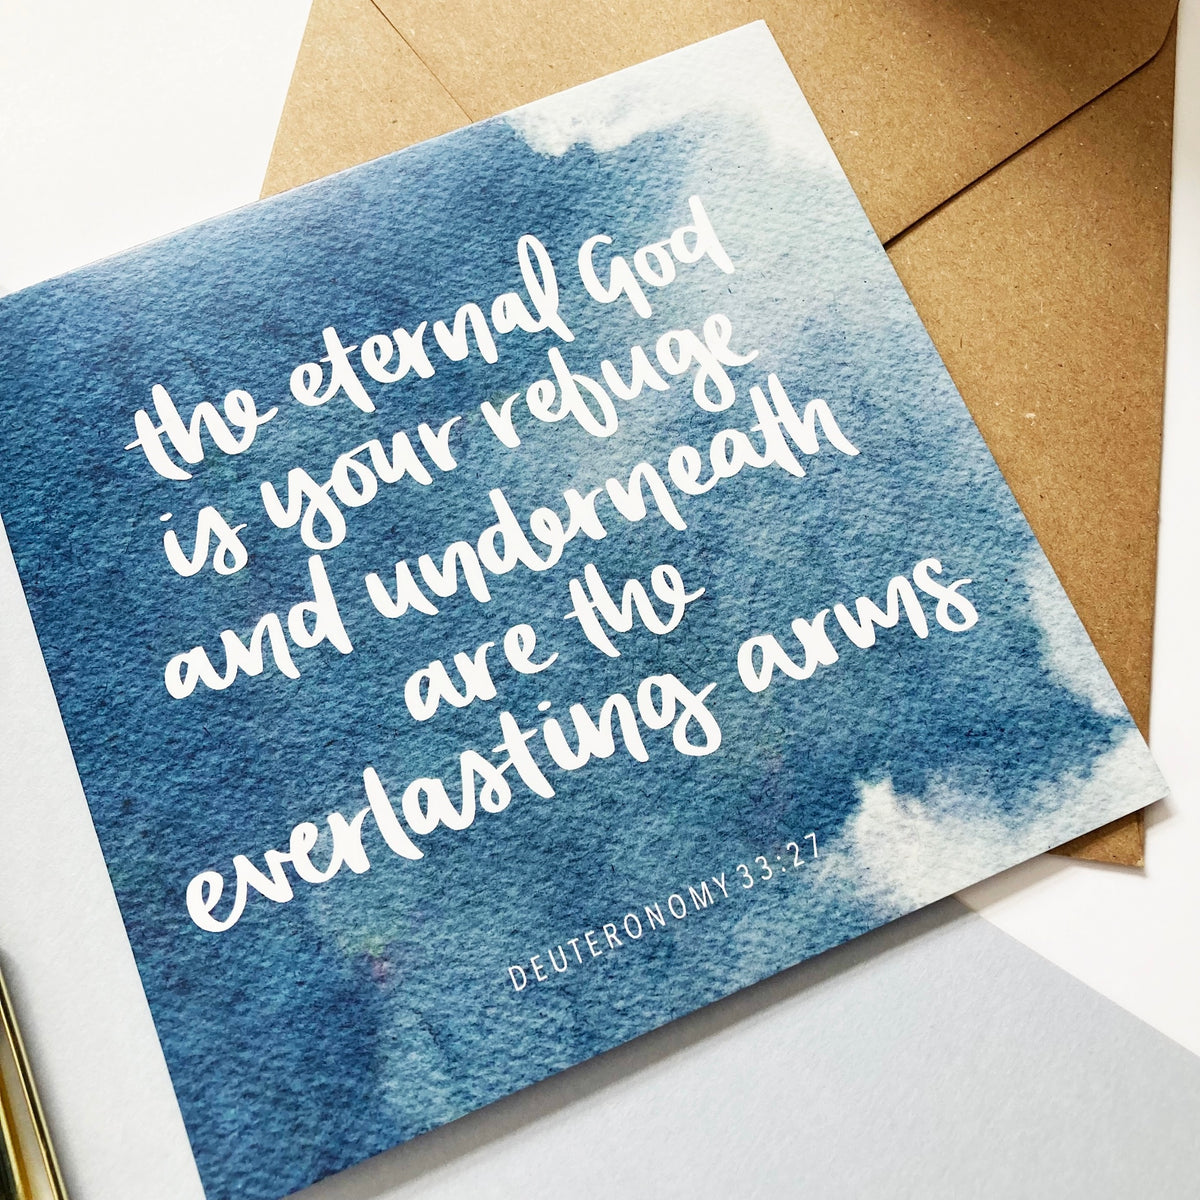 the eternal God
is your refuge
and underneath
are the
everlasting arms
DEUTERONOMY 33:27